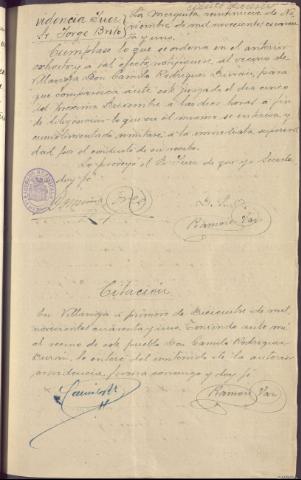 Providencia Juez
Sr. Jorge Brito
La Mezquita veintinueve de No-
viembre de mil novecientos cuaren-
ta y uno.
Cumplase lo que se ordena en el anterior
exhorto y a tal efecto, notifíquese al vecino de
Villavieja Don Camilo Rodriguez Durán, para
que comparezca ante este juzgado el dia cinco
del próximo Diciembre a las diez horas a fin
de
cumplimentado remítase a la inmediata superiori-
dad por el conducto de su recibo.
Lo proveyó el Sr. Juez de que yo Secreta-
rio doy fe.
D. S. O.
Ramón Vaz
Citación
En Villavieja a primero de Diciembre de mil
novecientos cuarenta y uno. Teniendo ante mi
al vecino de este pueblo Don Camilo Rodriguez
Durán, le enteré del contenido de la anterior
providencia, firma conmigo y doy fe.
Camilo R
Ramón Vaz